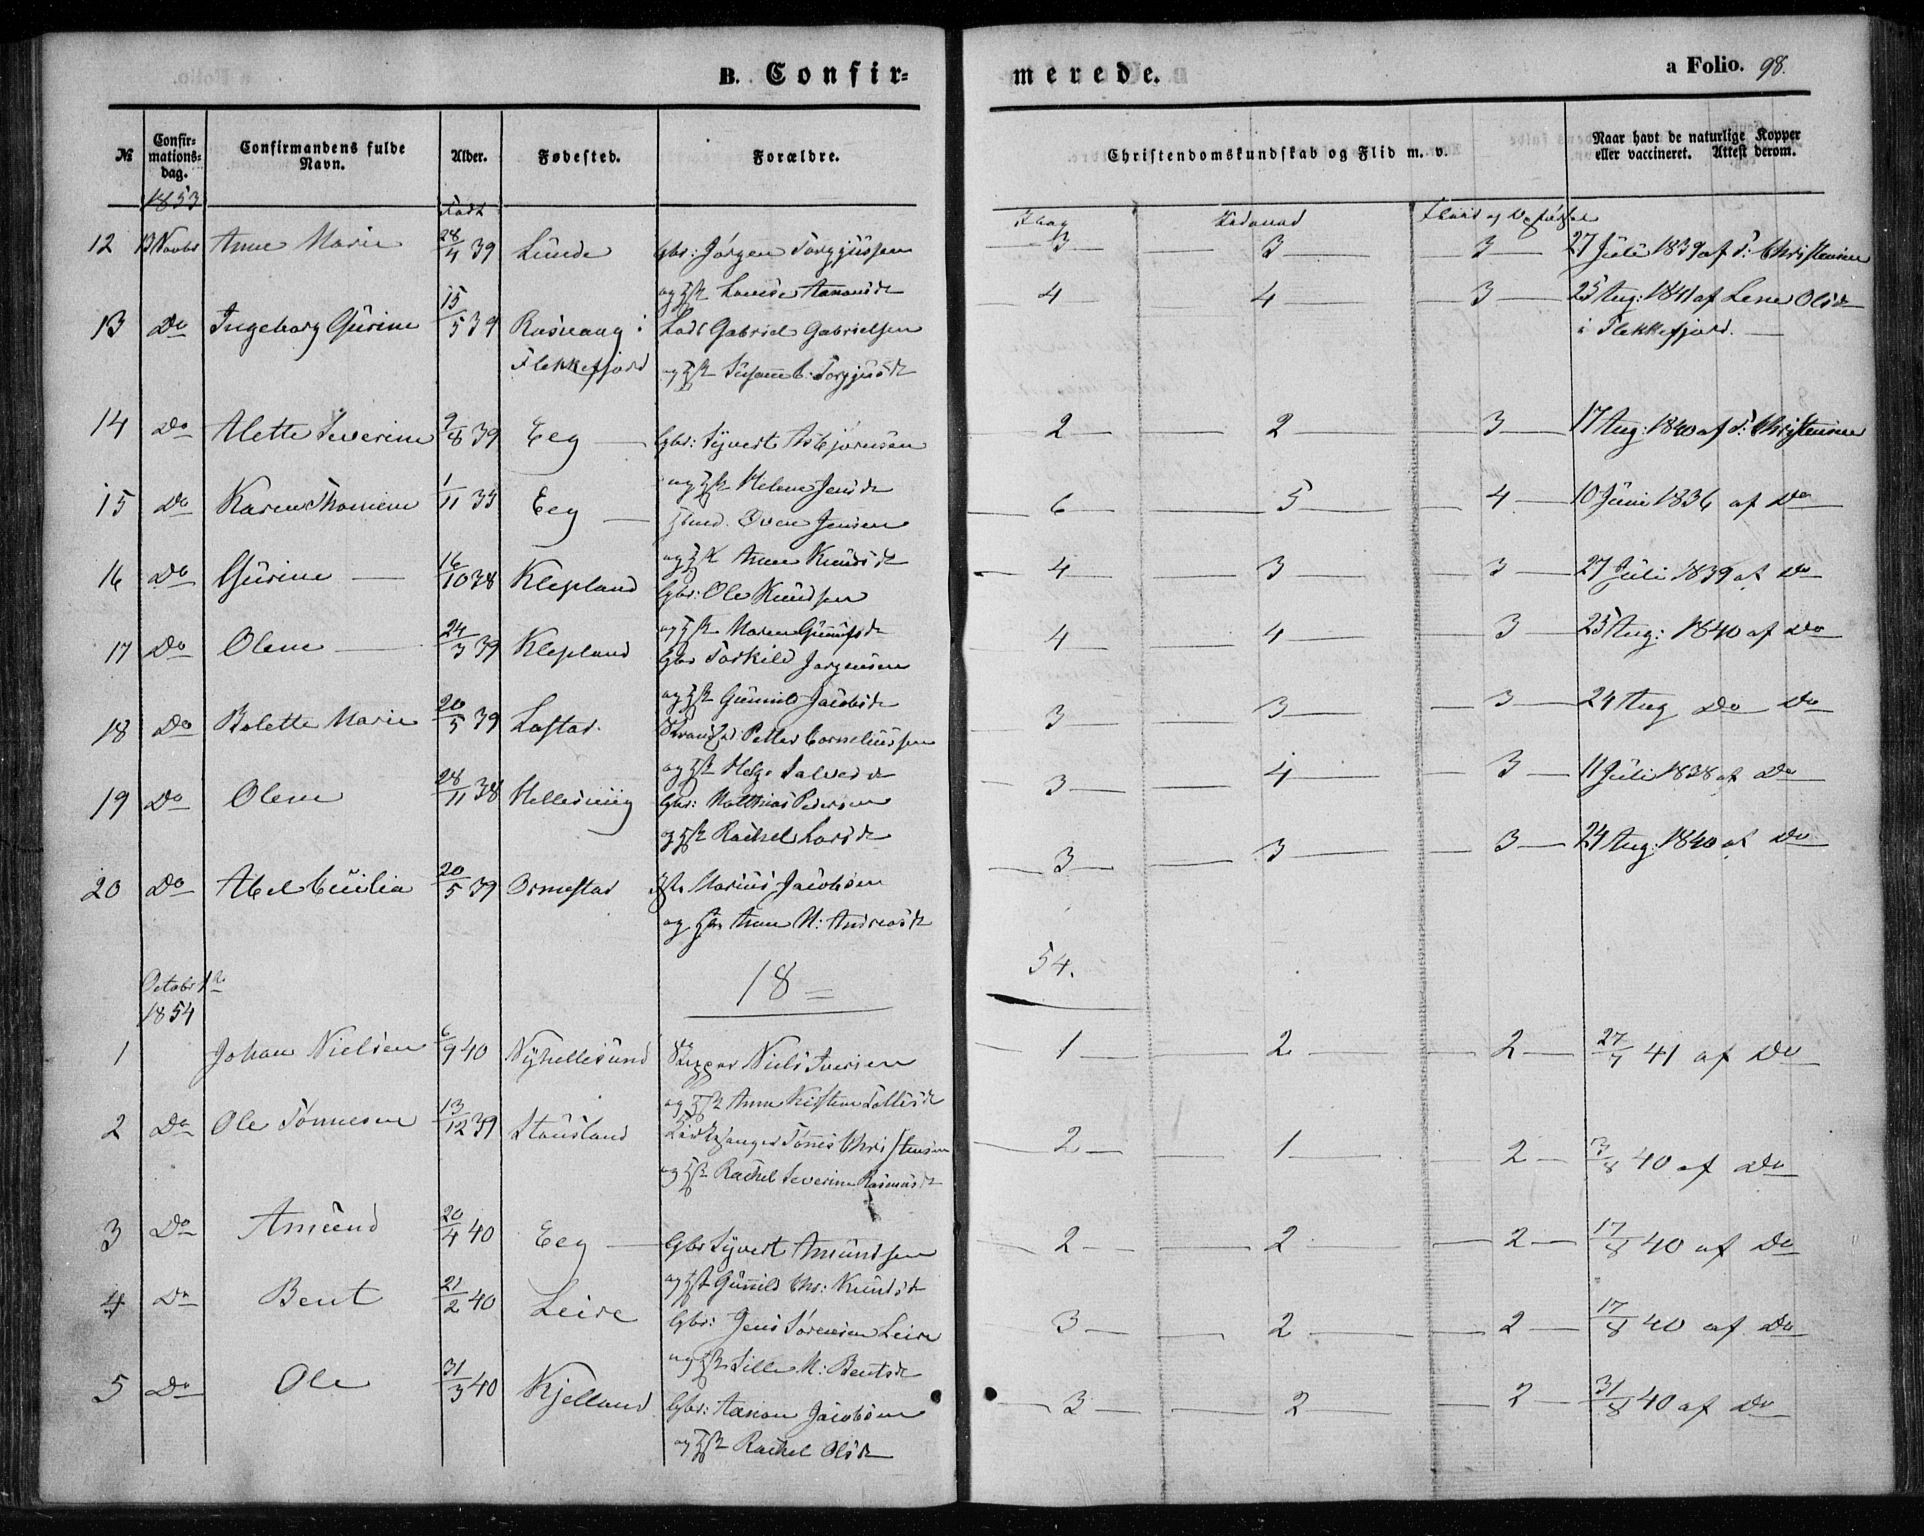 B. Confir-
merede.
a Folio. 98.
№
Confir-
mations-
dag.
Confirmandens fulde
Navn.
Alder.
Fødested.
Forældre.
Christendomskundskab og Flid m. v.
Naar havt de naturlige Kopper
eller vaccineret. Attest derom.
1853
Født
12 13 Novbr Anne Marie 28/4 39 Lunde Gbr: Jørgen Torgjussen 3 3 3 27 Juli 1839 af S: Christensen
og Hst Lovise Aanonsd
13 Do Ingeborg Gurine 15/5 39 Rasvaag i Lods Gabriel Gabrielsen 4 4 3 25 Aug: 1841 af Lene Olsd
Flekkefjord og Hst Susanne Torgjusd i Flekkefjord.
14 Do Alette Severine 9/8 39 Eeg Gbr: Syvert Asbjørnsen 2 2 3 17 Aug: 1840 af S: Christensen
og Hst Helene Jensd
15 Do Karen Thomine 1/11 35 Eeg Hmd. Sven Jensen 6 5 4 10 Juni 1836 af Do
og Hst Anne Knudsd
16 Do Gurine 16/10 38 Klepland Gbr: Ole Knudsen 4 3 3 27 Juli 1839 af Do
og Hst Maren Gunulfsd
17 Do Olene 24/3 39 Klepland Gbr Torkild Jørgensen 4 4 3 25 Aug: 1840 af Do
og Hst Gunnild Jacobsd
18 Do Bolette Marie 20/5 39 Lastad Petter Corneliussen 3 3 3 24 Aug Do Do
og Hst Helge Salvesd
19 Do Olene 28/11 38 Hellesviig Gbr: Mathias Pedersen 3 4 3 11 Juli 1838 af Do
og Hst Rachel Larsd
20 Do Abel Cecilia 20/5 39 Ormestad Marius Jacobsen 3 3 3 24 Aug: 1840 af Do
og Hst Anne M: Andreasd
18 = 54.
Octobr 1ste
1854
1 Johan Nielsen 6/9 40 Nyhellesund Skipper Niels Iversen 1 2 2 27/7 41 af Do
og Hst Anne Kirstine Tellefsd
2 Do Ole Tønnesen 13/12 39 Stausland Kirkesanger Tønnes Christensen 2 1 2 3/8 40 af Do
og Hst Rachel Severine Rasmusd
3 Do Amund 20/4 40 Eeg Gbr Syvert Amundsen 2 2 2 17/8 40 af Do
og Hst Gunnild Chr: Knudsd
4 Do Bent 21/2 40 Leire Gbr: Jens Sørensen Leire 3 2 2 17/8 40 af Do
og Hst Sille M: Bentsd
5 Do Ole 31/3 40 Kjelland Gbr: Aanon Jacobsen 3 2 2 31/8 40 af Do
og Hst Rachel Olsd